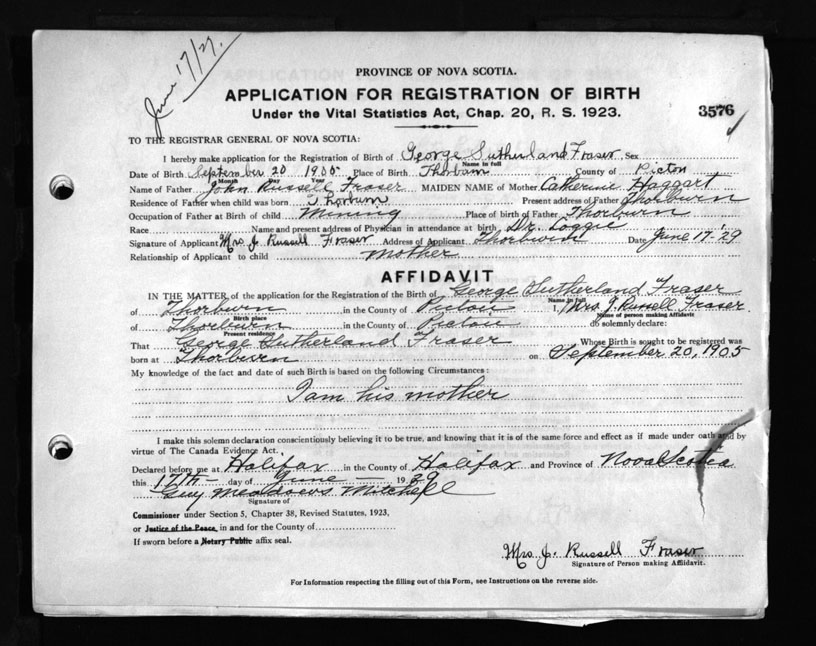 June 17/29.
PROVINCE OF NOVA SCOTIA.
APPLICATION FOR REGISTRATION OF BIRTH
Under the Vital Statistics Act, Chap. 20, R. S. 1923.
3576
TO THE REGISTRAR GENERAL OF NOVA SCOTIA:
I hereby make application for the Registration of Birth of George Sutherland Fraser Sex
Name in full
Date of Birth September 20 1905 Place of Birth Thorburn County of Pictou
Month Day Year
Name of Father John Russell Fraser MAIDEN NAME of Mother Catherine Haggart
Residence of Father when child was born Thorburn Present address of Father Thorburn
Occupation of Father at Birth of child Mining Place of birth of Father Thorburn
Race Name and present address of Physician in attendance at birth Dr. Loggie
Signature of Applicant Mrs J. Russell Fraser Address of Applicant Thorburn Date June 17-'29
Relationship of Applicant to child Mother
AFFIDAVIT
IN THE MATTER of the application for the Registration of the Birth of George Sutherland Fraser
Name in full
of Thorburn in the County of Pictou I, Mrs J. Russell Fraser
Birth place Name of person making Affidavit
of Thorburn in the County of Pictou do solemnly declare:
Present residence
That George Sutherland Fraser Whose Birth is sought to be registered was
born at Thorburn on September 20, 1905
My knowledge of the fact and date of such Birth is based on the following Circumstances:
I am his mother
I make this solemn declaration conscientiously believing it to be true, and knowing that it is of the same force and effect as if made under oath and by
virtue of The Canada Evidence Act.
Declared before me at Halifax in the County of Halifax and Province of Nova Scotia
this 17th day of June 1929
Guy Meadows Mitchell
Signature of
Commissioner under Section 5, Chapter 38, Revised Statutes, 1923,
or Justice of the Peace, in and for the County of
If sworn before a Notary Public affix seal.
Mrs. J. Russell Fraser
Signature of Person making Affidavit.
For Information respecting the filling out of this Form, see Instructions on the reverse side.